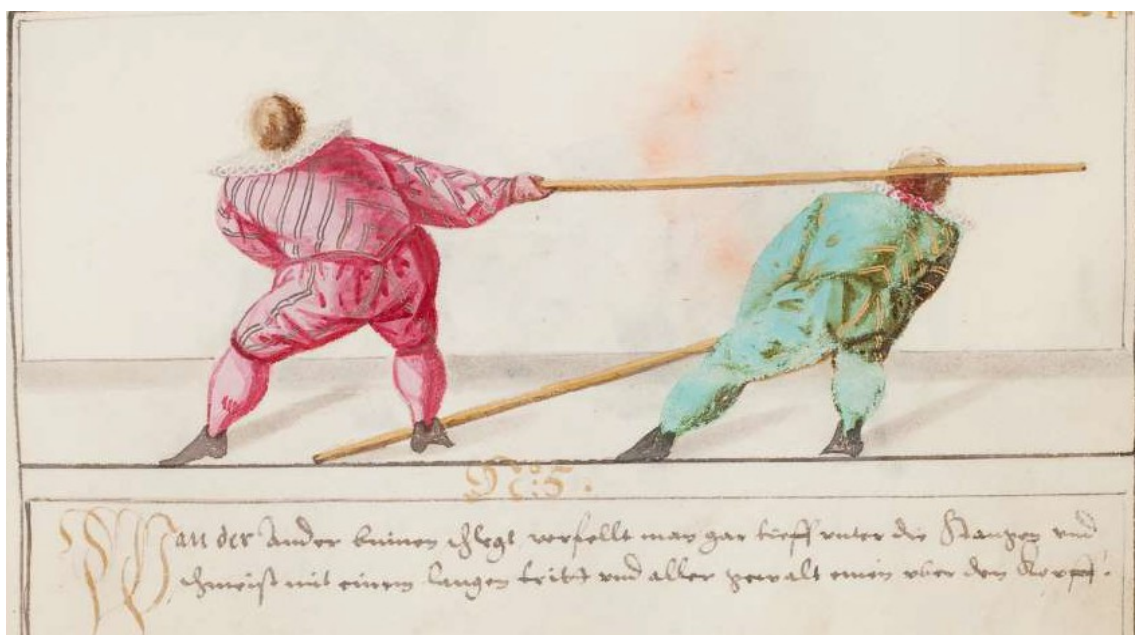 N: 5.
Wan der Ander schlegt verfellt man gar tieff vnter die Stangen vnd
schmeist mit einem langen tritt vnd aller gewalt vber den Kopff.